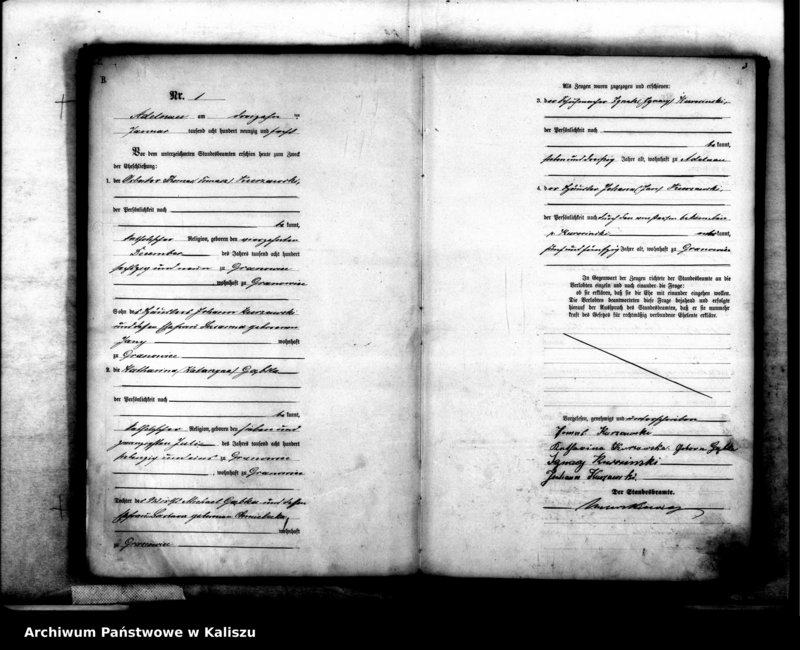 B
Nr. 1
Adelnau am dreizehn ten
Januar tausend acht hundert neunzig und sechs
Vor dem unterzeichneten Standesbeamten erschienen heute zum Zweck
der Eheschließung:
1. der Arbeiter Thomas (Tomasz) Kurzawski,
der Persönlichkeit nach
be kannt,
katholischer Religion, geboren den vierzehnten
December des Jahres tausend acht hundert
sechzig und neun zu Granowiec
, wohnhaft zu Granowiec
Sohn des Häuslers Johann Kurzawski
und dessen Ehefrau Susanna geborenen
wohnhaft
zu Granowiec
2. die Katharina (Katarzyna) Gąbka
der Persönlichkeit nach
be kannt,
katholischer Religion, geboren den sieben und
zwanzigsten Juli des Jahres tausend acht hundert
siebenzig und zu Granowiec
, wohnhaft zu Granowiec
Tochter des Wirths Michael Gąbka und dessen
Ehefrau Barbara geborenen
wohnhaft
zu Granowiec
3
Als Zeugen waren zugezogen und erschienen:
3. der Schuhmacher Ignatz (Ignacy)
der Persönlichkeit nach
be kannt,
sieben und dreißig Jahre alt, wohnhaft zu Adelnau
4. der Häusler Johann (Jan) Kurzawski,
der Persönlichkeit nach durch den bekannten
kannt,
fünf und fünfzig Jahre alt, wohnhaft zu Granowiec
In Gegenwart der Zeugen richtete der Standesbeamte an die
Verlobten einzeln und nach einander die Frage:
ob sie erklären, daß sie die Ehe mit einander eingehen wollen.
Die Verlobten beantworteten diese Frage bejahend und erfolgte
hierauf der Ausspruch des Standesbeamten, daß er sie nunmehr
kraft des Gesetzes für rechtmäßig verbundene Eheleute erkläre.
Vorgelesen, genehmigt und unterschrieben
Tomas Kurzawski
Katharina Kurzawska geborn Gąbka
Ignacy
Johann Kurzawski.
Der Standesbeamte.
Archiwum Państwowe w Kaliszu